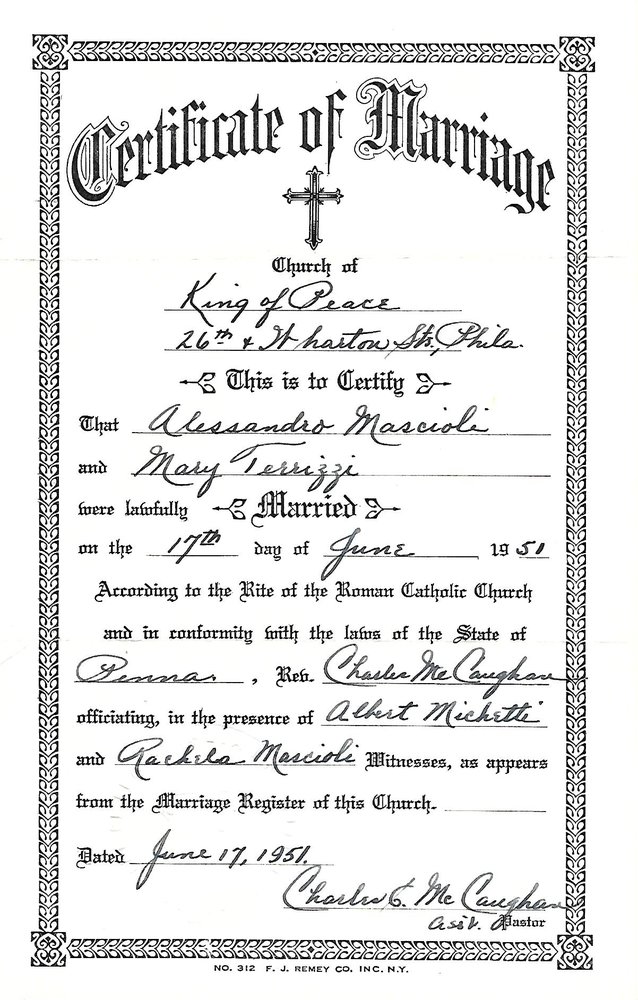 Certificate of Marriage
Church of
King of Peace
26th & Wharton Sts., Phila.
This is to Certify
That Alessandro Mascioli
and Mary Terrizzi
were lawfully Married
on the 17th day of June 1951
According to the Rite of the Roman Catholic Church
and in conformity with the laws of the State of
Penna. , Rev. Charles McCaughan
officiating, in the presence of Albert Michetti
and Rachela Mascioli Witnesses, as appears
from the Marriage Register of this Church.
Dated June 17, 1951.
Charles E. McCaughan
asst. Pastor
NO. 312 F. J. REMEY CO. INC. N.Y.